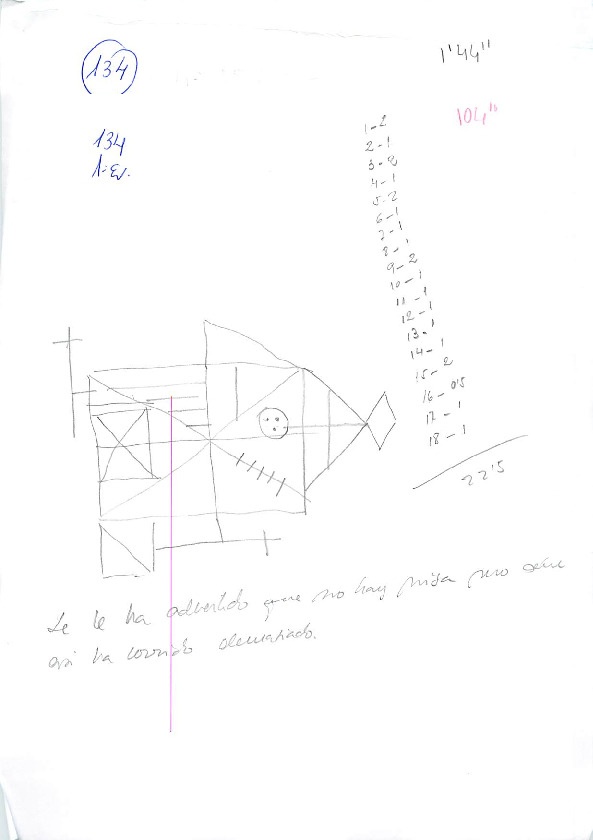 134
1'44"
104"
134
1-2
2-1
3-2
4-1
5-2
6-1
7-1
8-1
9-2
10-1
11-1
12-1
13-1
14-1
15-2
16-0'5
17-1
18-1
22'5
Se le ha advertido que no hay prisa pero
así ha corrido demasiado.